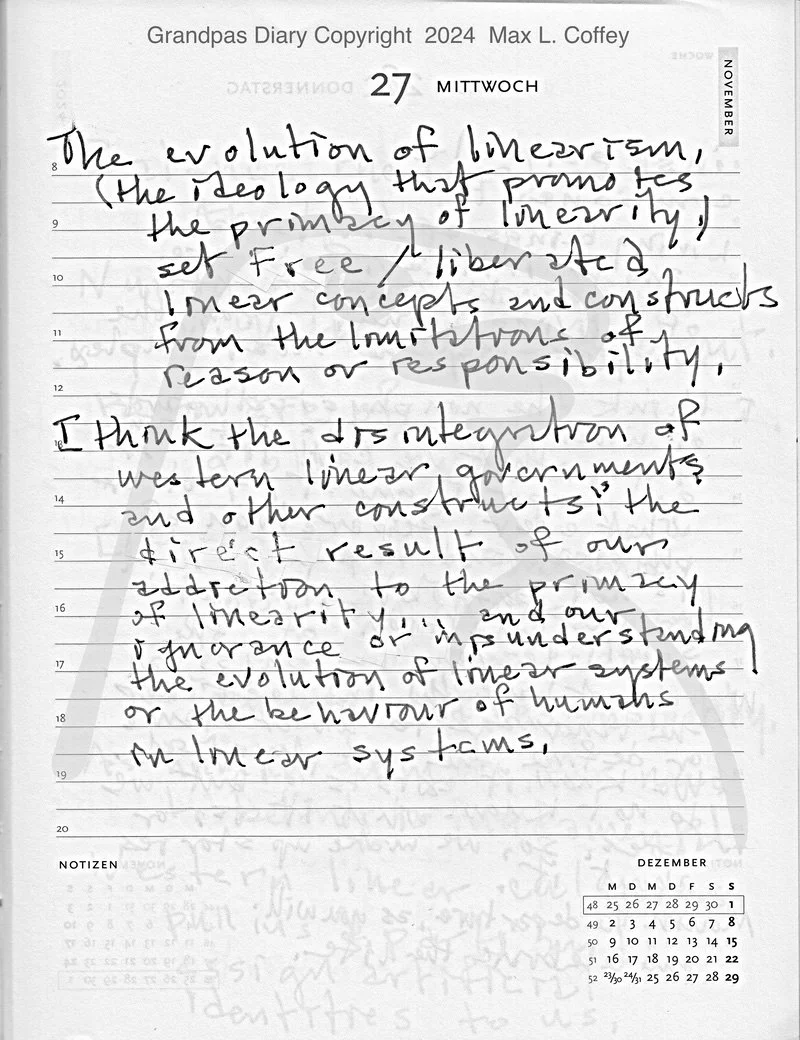 Grandpas Diary Copyright 2024 Max L. Coffey
27 MITTWOCH
NOVEMBER
8
The evolution of linearism,
(the ideology that promotes
9
the primacy of linearity,)
set Free / liberated
10
linear concepts and constructs
11
from the limitations of
reason or responsibility.
12
I think the disintegration of
western linear governments
14
and other constructs is the
15
direct result of our
addiction to the primacy
16
of linearity... and our
ignorance or misunderstanding
17
the evolution of linear systems
18
or the behaviour of humans
in linear systems.
19
20
NOTIZEN
DEZEMBER
M D M D F S S
48 25 26 27 28 29 30 1
49 2 3 4 5 6 7 8
50 9 10 11 12 13 14 15
51 16 17 18 19 20 21 22
52 23/30 24/31 25 26 27 28 29